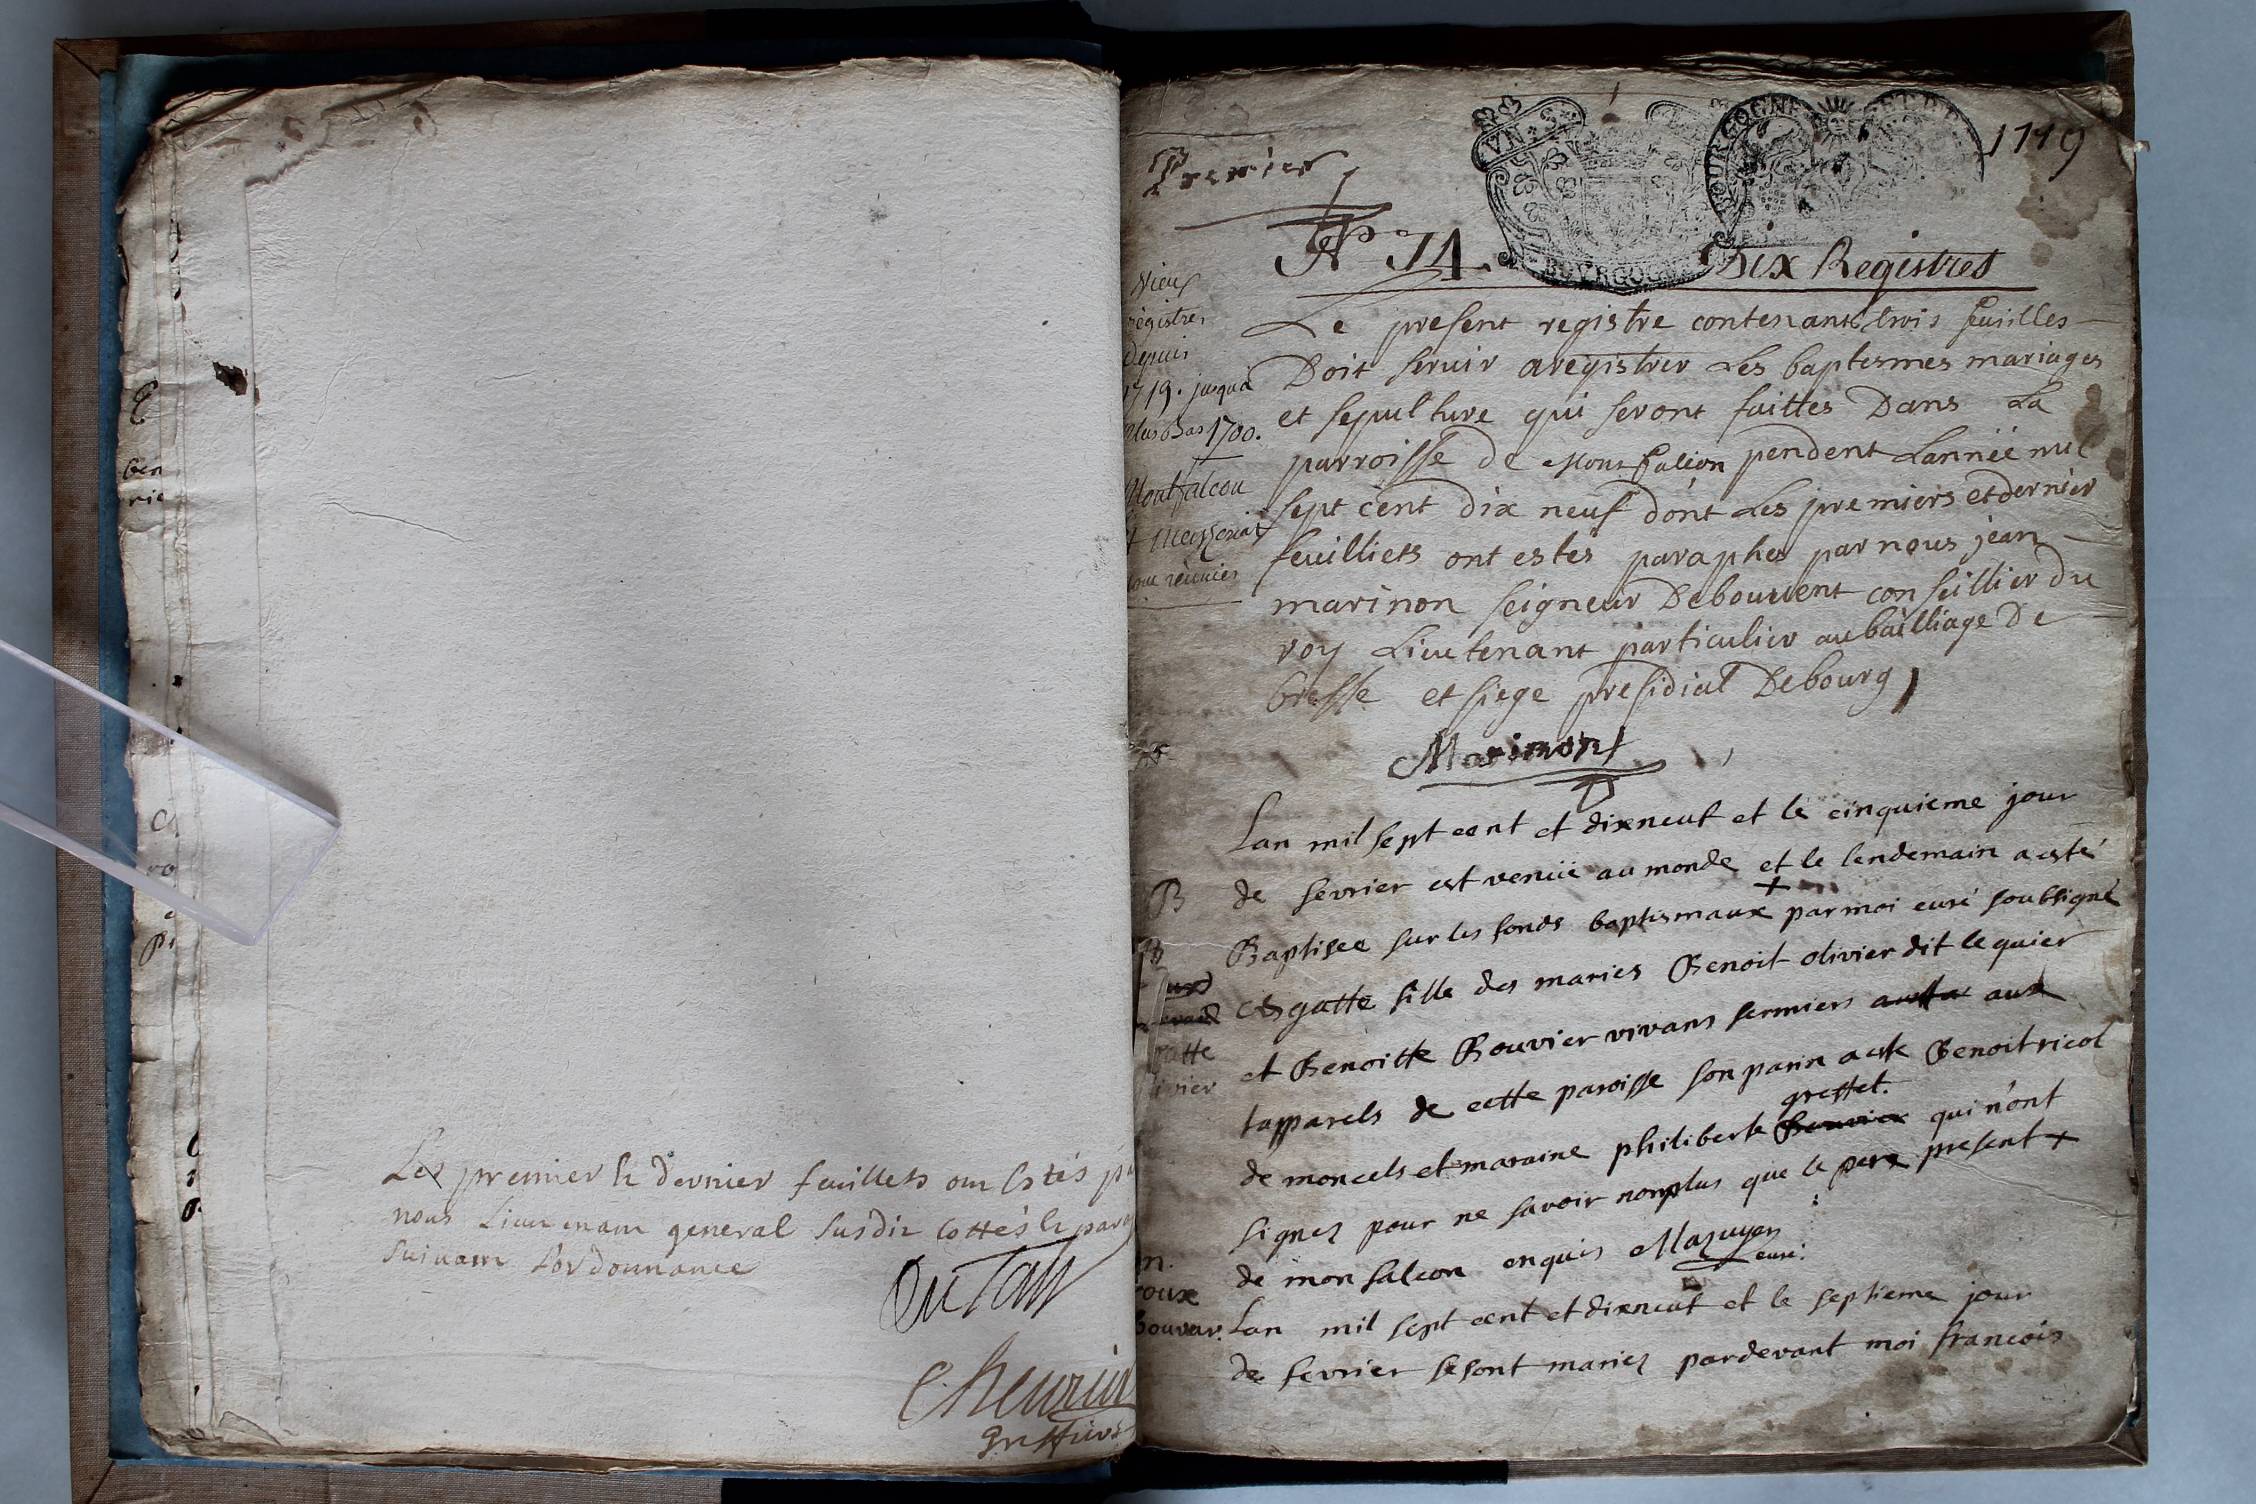 Les premier & dernier feuillets ont estés
nous Lieutenant general susdit cottés &
suivant l'ordonnance
Dutour
Chevrier
greffier
1719
Premier
VN S
BOURGOGNE
BOURGOGNE ET BR
N° 74. Dix Registres
Vieux
régistres
depuis
1719. jusqua
plus bas 1700.
Montfalcon
sont réunies
Le present registre contenant trois feuilles
Doit servir a registrer Les baptesmes mariages
et sepulture qui seront faittes Dans La
parroisse de Montfalcon pendent Lannéé mil
sept cent dix neuf dont Les premiers et dernier
feuilliets ont estés paraphes par nous jean
marinon seigneur De bouvent conseillier du
roy Lieutenant particulier au bailliage De
bresse et siege presidial De bourg
Marimon
Lan mil sept cent et dixneuf et le cinquieme jour
B
de fevrier est venüe au monde et le lendemain a esté
Baptisee sur les fonds baptismaux + par moi curé soubsigné
Agatte fille des maries Benoit olivier dit le quier
et Benoitte Bouvier vivans fermiers aux
tapparels de cette paroisse son parin a este Benoit ricol
greffet.
de moncels et maraine philiberte Bouvier qui n'ont
signez pour ne savoir nonplus que le pere present +
de monfalcon enquis Mazuyer
curé.
Lan mil sept cent et dixneuf et le septieme jour
de fevrier se sont mariez pardevant moi francois